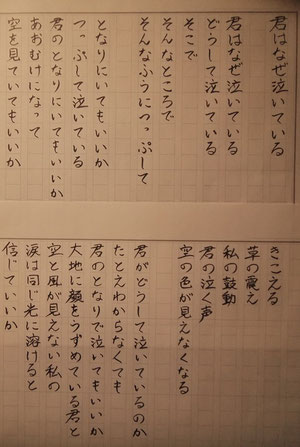 君はなぜ泣いている
君はなぜ泣いている
どうして泣いている
そこで
そんなところで
そんなふうにつっぷして
となりにいてもいいか
つっぷして泣いている
君のとなりにいてもいいか
あおむけになって
空を見ていてもいいか
きこえる
草の震え
私の鼓動
君の泣く声
空の色が見えなくなる
君がどうして泣いているのか
たとえわからなくても
君のとなりで泣いてもいいか
大地に顔をうずめている君と
空と風が見えない私の
涙は同じ光に溶けると
信じていいか